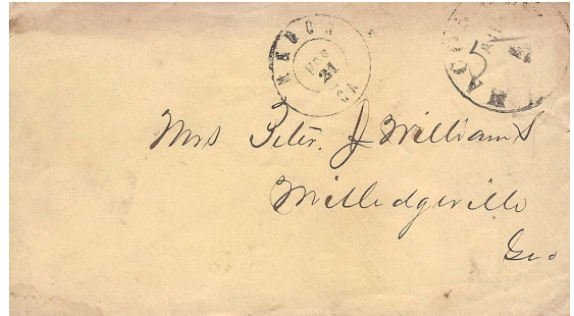 MACON
21
GA
MACO
5
Mrs Peter. J Williams
Milledgeville
Geo